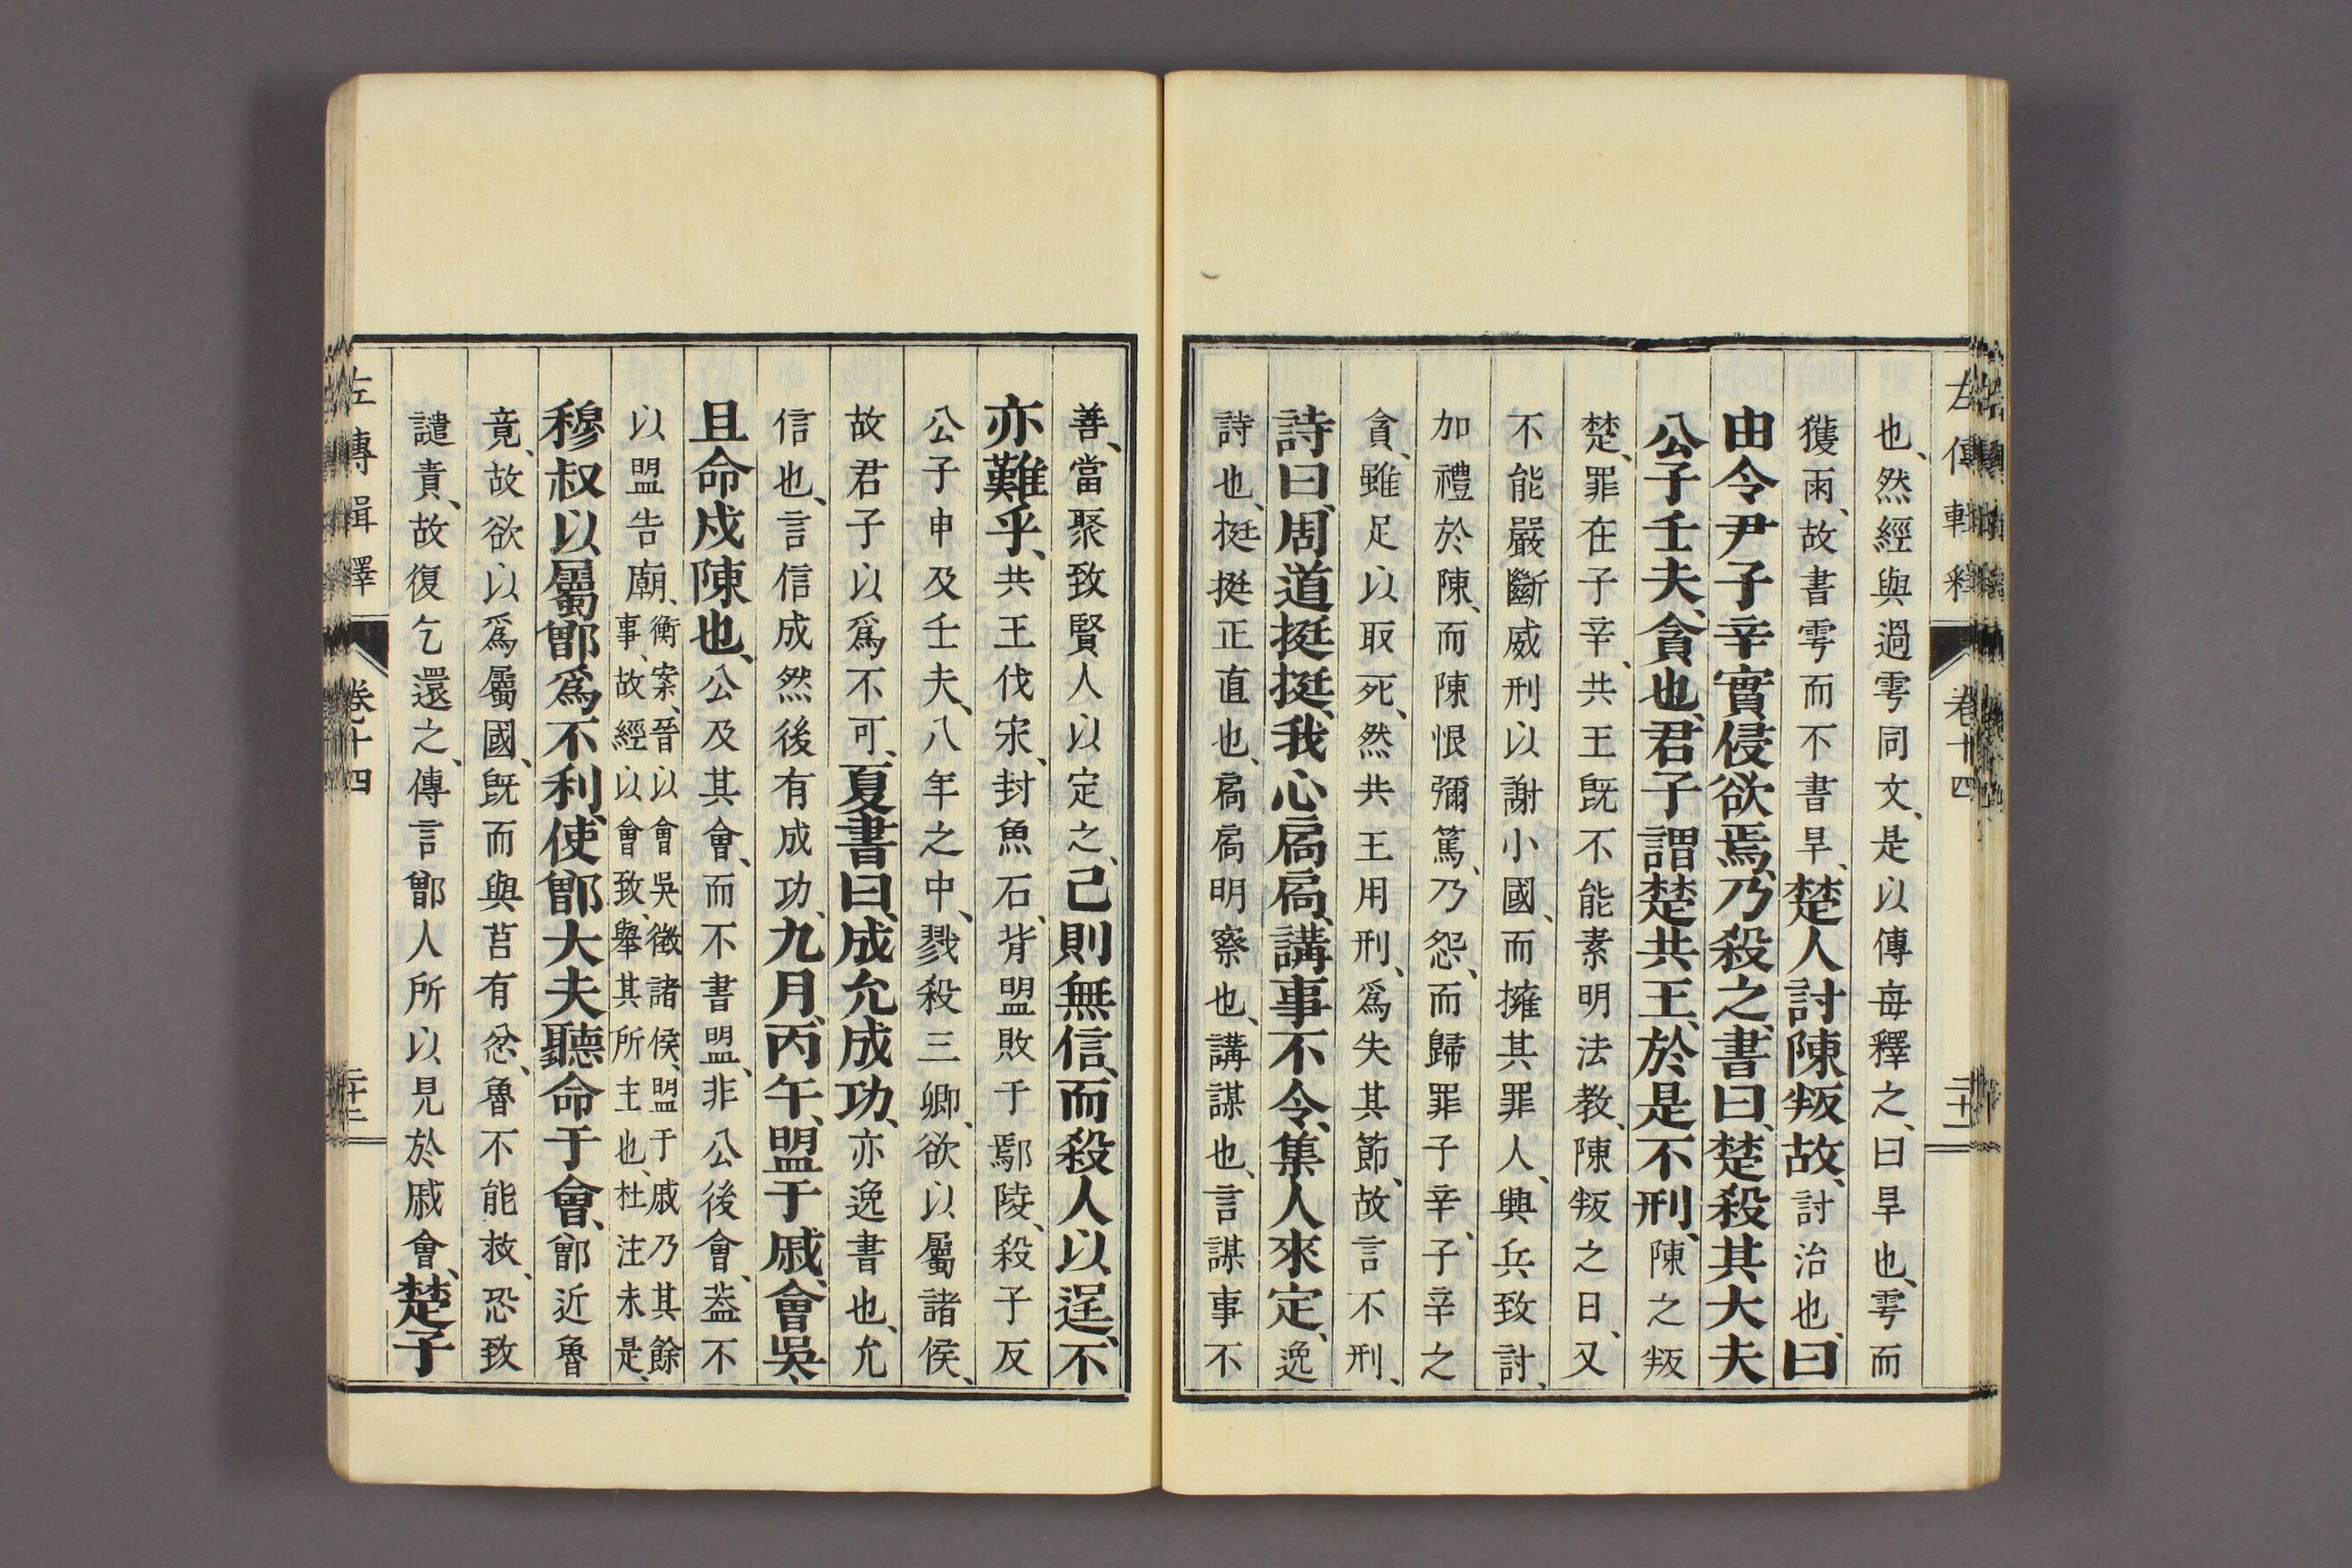 也、然經與過雩同文、是以傳每釋之、曰旱也、雩而
獲雨、故書雩而不書旱、楚人討陳叛故、討治也、曰
由令尹子辛實侵欲焉、乃殺之、書曰、楚殺其大夫
公子壬夫、貪也、君子謂楚共王、於是不刑、陳之叛
楚、罪在子辛、共王既不能素明法教、陳叛之日、又
不能嚴斷威刑以謝小國、而擁其罪人、興兵致討、
加禮於陳、而陳恨彌篤、乃怨、而歸罪子辛、子辛之
貪、雖足以取死、然共王用刑、爲失其節、故言不刑、
詩曰、周道挺挺、我心扃扃、講事不令、集人來定、逸
詩也、挺挺正直也、扃扃明察也、講謀也、言謀事不
善、當聚致賢人以定之、己則無信、而殺人以逞、不
亦難乎、共王伐宋、封魚石、背盟敗于鄢陵、殺子反
公子申及壬夫、八年之中、戮殺三卿、欲以屬諸侯、
故君子以爲不可、夏書曰、成允成功、亦逸書也、允
信也、言信成然後有成功、九月、丙午、盟于戚、會吳、
且命戍陳也、公及其會、而不書盟、非公後會、蓋不
以盟告廟、衡案、晉以會吳徵諸侯、盟于戚乃其餘
事、故經以會致、舉其所主也、杜注未是、
穆叔以屬鄫爲不利、使鄫大夫聽命于會、鄫近魯
竟、故欲以爲屬國、既而與莒有忿、魯不能救、恐致
譴責、故復乞還之、傳言鄫人所以見於戚會、楚子
左傳輯釋 卷十四